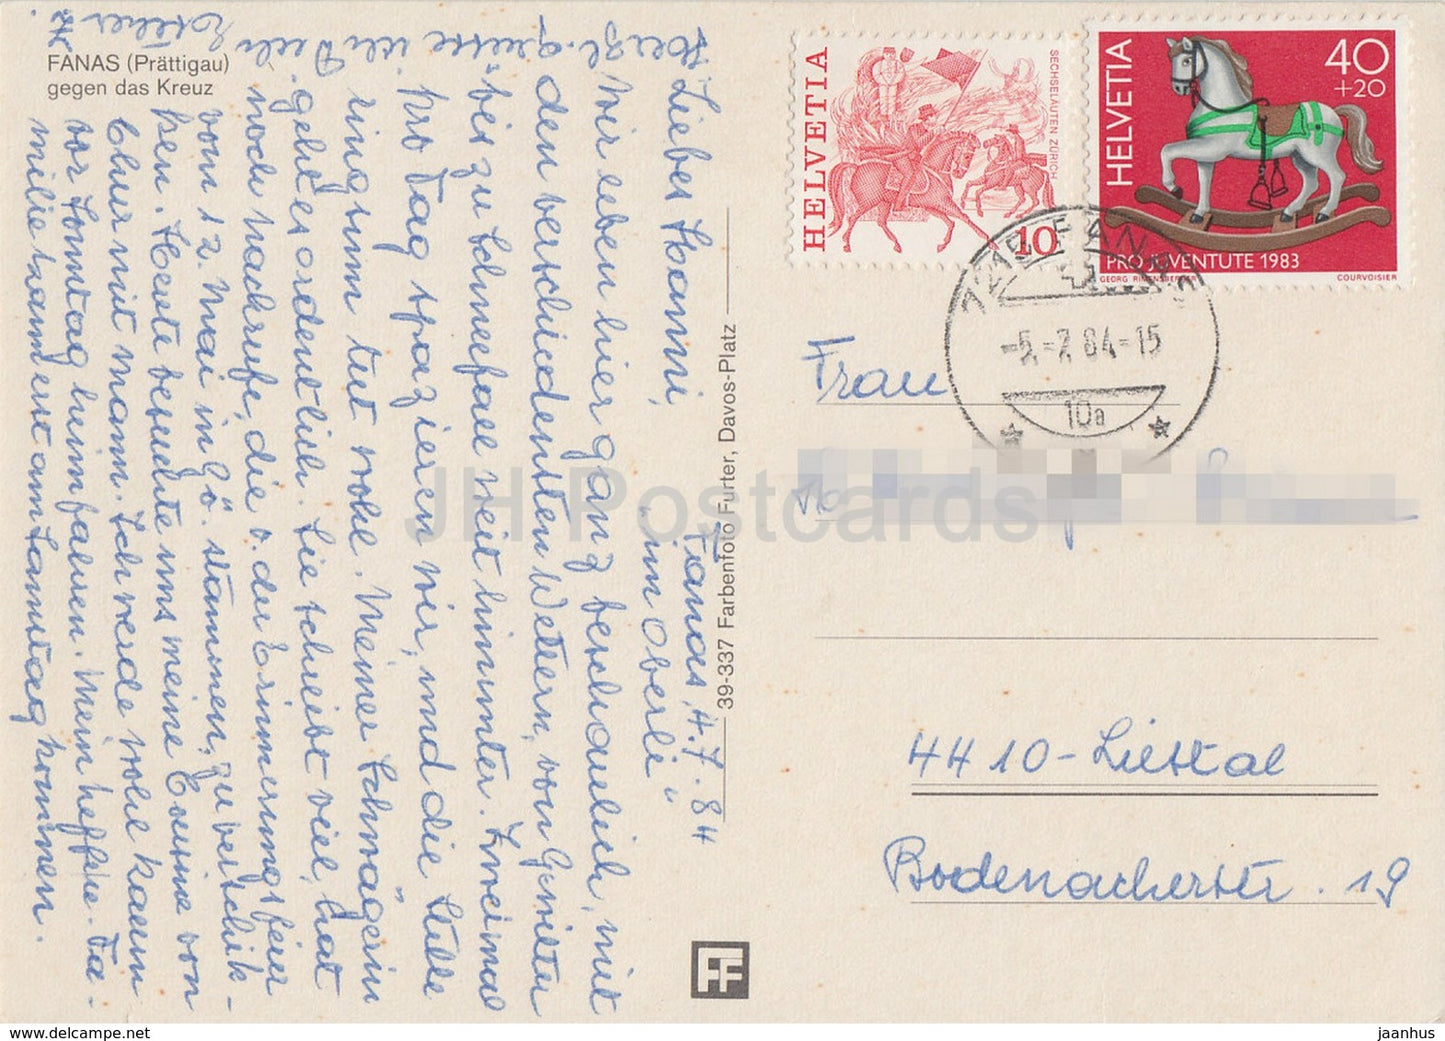 FANAS (Prättigau)
gegen das Kreuz
Fanas, 4.7.84
"im Oberli"
Lieber Hanni,
Wir leben hier ganz beschaulich, mit
den verschiedensten Wettern, von Gewitter
bis zu Schneefall weit hinunter. Zweimal
pro Tag spazieren wir, und die Stille
ringsum tut wohl. Meiner Schwägerin
geht es ordentlich. Sie schreibt viel, hat
noch Nachrufe, die v. der Erinnerungsfeier
vom 12. Mai in Gö. stammen, zu verschik-
ken. Heute besuchte uns meine Cousine von
Chur mit Mann. Ich werde wohl kaum
vor Sonntag heimfahren. Mein Neffe + Fa-
milie kann erst am Samstag kommen.
39-337 Farbenfoto Furter, Davos-Platz
FF
HELVETIA
SECHSELÄUTEN ZÜRICH
10
HELVETIA
40
+20
PRO JUVENTUTE 1983
GEORG RIMENSBERGER
COURVOISIER
7215 FANAS
-5.-7.84-15
10a
Frau
4410-Liestal
Bodenackerstr. 19
JH Postcards
www.jhpostcard.com
jaanhus